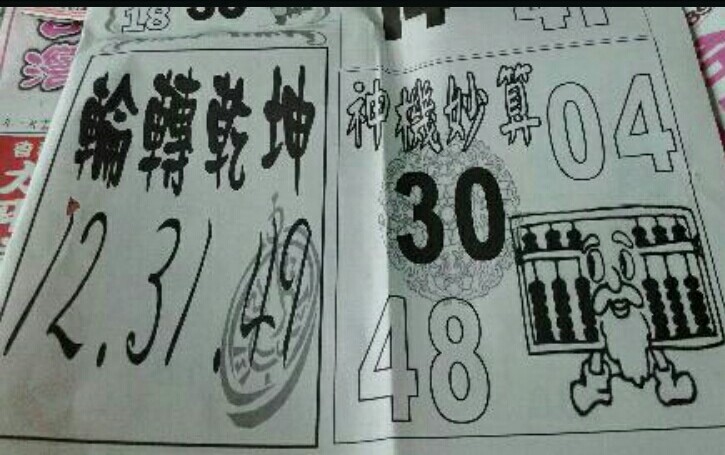 18
41
輪轉乾坤
12.31.49
神機妙算
04
30
48